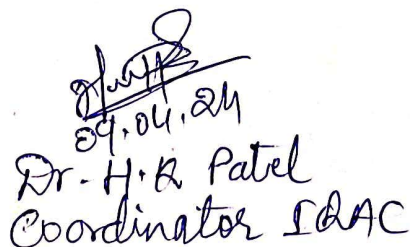 09.04.24
Dr. H.R Patel
Coordinator IQAC